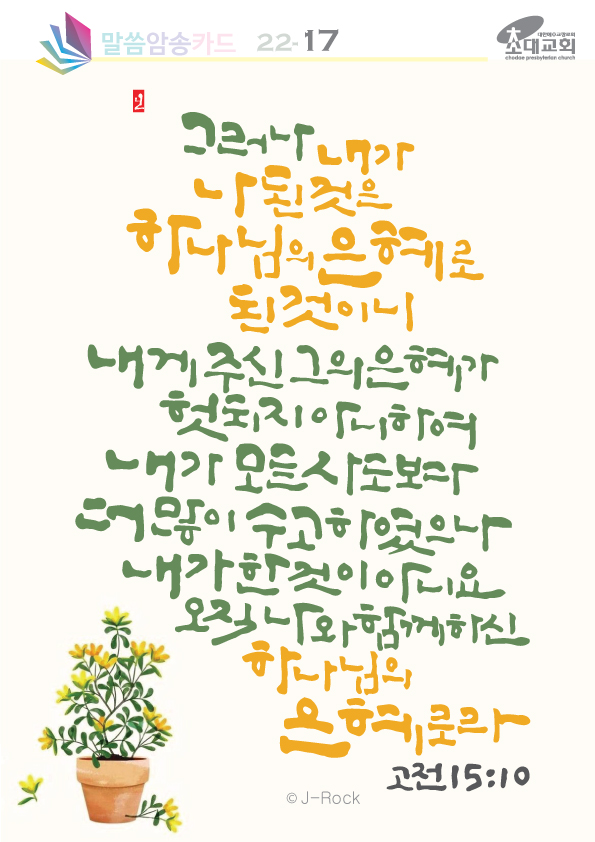 말씀암송카드 22-17
대한예수교장로회
초대교회
chodae presbyterian church
그러나 내가
나 된 것은
하나님의 은혜로
된 것이니
내게 주신 그의 은혜가
헛되지 아니하여
내가 모든 사도보다
더 많이 수고하였으나
내가 한 것이 아니요
오직 나와 함께 하신
하나님의
은혜로라
고전 15:10
© J-Rock